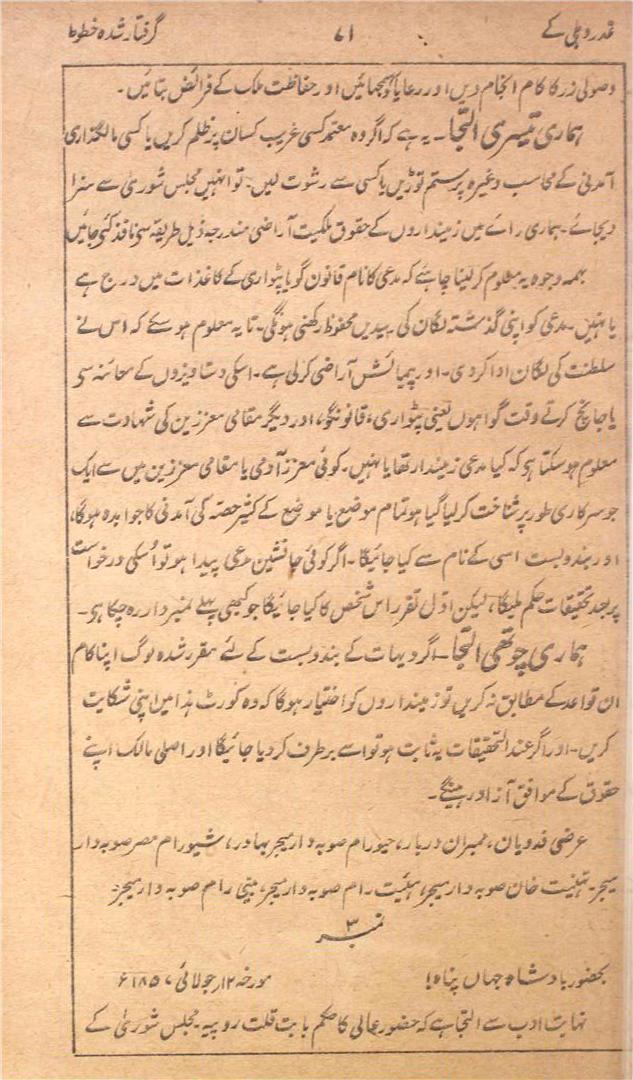 غدر دہلی کے ۷۱ گرفتار شدہ خطوط
وصولی زر کا کام انجام دیں اور رعایا کو سمجھائیں اور حفاظت ملک کے فرائض بتائیں۔
ہماری تیسری التجا۔ یہ ہے کہ اگر وہ معتمد کسی غریب کسان پر ظلم کریں یا کسی مالگذاری
آمدنی کے محاسب وغیرہ پر ستم توڑیں یا کسی سے رشوت لیں۔ تو انہیں مجلس شوریٰ سے سزا
دیجائے۔ ہماری رائے میں زمینداروں کے حقوق ملکیت آراضی مندرجہ ذیل طریقہ سی نافذ کئی جائیں
بہمہ وجوہ یہ معلوم کر لینا چاہئے کہ مدعی کا نام قانون گو یا پٹواری کے کاغذات میں درج ہے
یا نہیں۔ مدعی کو اپنی گذشتہ لگان کی رسیدیں محفوظ رکھنی ہونگی۔ تا یہ معلوم ہو سکے کہ اس نے
سلطنت کی لگان ادا کر دی۔ اور پیمائش آراضی کر لی ہے۔ اسکی دستاویزوں کے معائنہ سی
یا جانچ کرتے وقت گواہوں یعنی پٹواری، قانونگو، اور دیگر مقامی معززین کی شہادت سے
معلوم ہو سکتا ہو کہ کیا مدعی زمیندار تھا یا نہیں۔ کوئی معزز آدمی یا مقامی معززین میں سے ایک
جو سرکاری طور پر شناخت کر لیا گیا ہو تمام موضع یا موضع کے کثیر حصہ کی آمدنی کا جوابدہ ہوگا،
اور بندوبست اسی کے نام سے کیا جائیگا۔ اگر کوئی جانشین مدعی پیدا ہو تو اسکی درخواست
پر بعد تحقیقات حکم ملیگا، لیکن اول تقرر اس شخص کا کیا جائیگا جو کبھی پہلے نمبردار رہ چکا ہو۔
ہماری چوتھی التجا۔ اگر دیہات کے بندوبست کے لئے مقرر شدہ لوگ اپنا کام
ان قواعد کے مطابق نہ کریں تو زمینداروں کو اختیار ہوگا کہ وہ کورٹ ہذا میں اپنی شکایت
کریں۔ اور اگر عند التحقیقات یہ ثابت ہو تو اسے برطرف کر دیا جائیگا اور اصلی مالک اپنے
حقوق کے موافق آزاد رہینگے۔
عرضی فدویان، ممبران دربار، جیورام صوبہ دار میجر بہادر، شیورام مصر صوبہ دار
میجر۔ تہنیت خان صوبہ دار میجر، ہیئت رام صوبہ دار میجر، بینی رام صوبہ دار میجر۔
نمبر ۳
بحضور بادشاہ جہاں پناہ! مورخہ ۱۲ر جولائی ۱۸۵۷ء
نہایت ادب سے التجا ہے کہ حضور عالی کا حکم بابت قلت روپیہ۔ مجلس شوریٰ کے